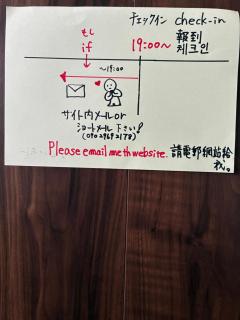 チェックイン check-in
もし
if
19:00~
報到
체크인
~19:00
サイト内メール or
ショートメール 下さい!
(090 2969 2178)
Please email me th website. 請電郵網站給
我。